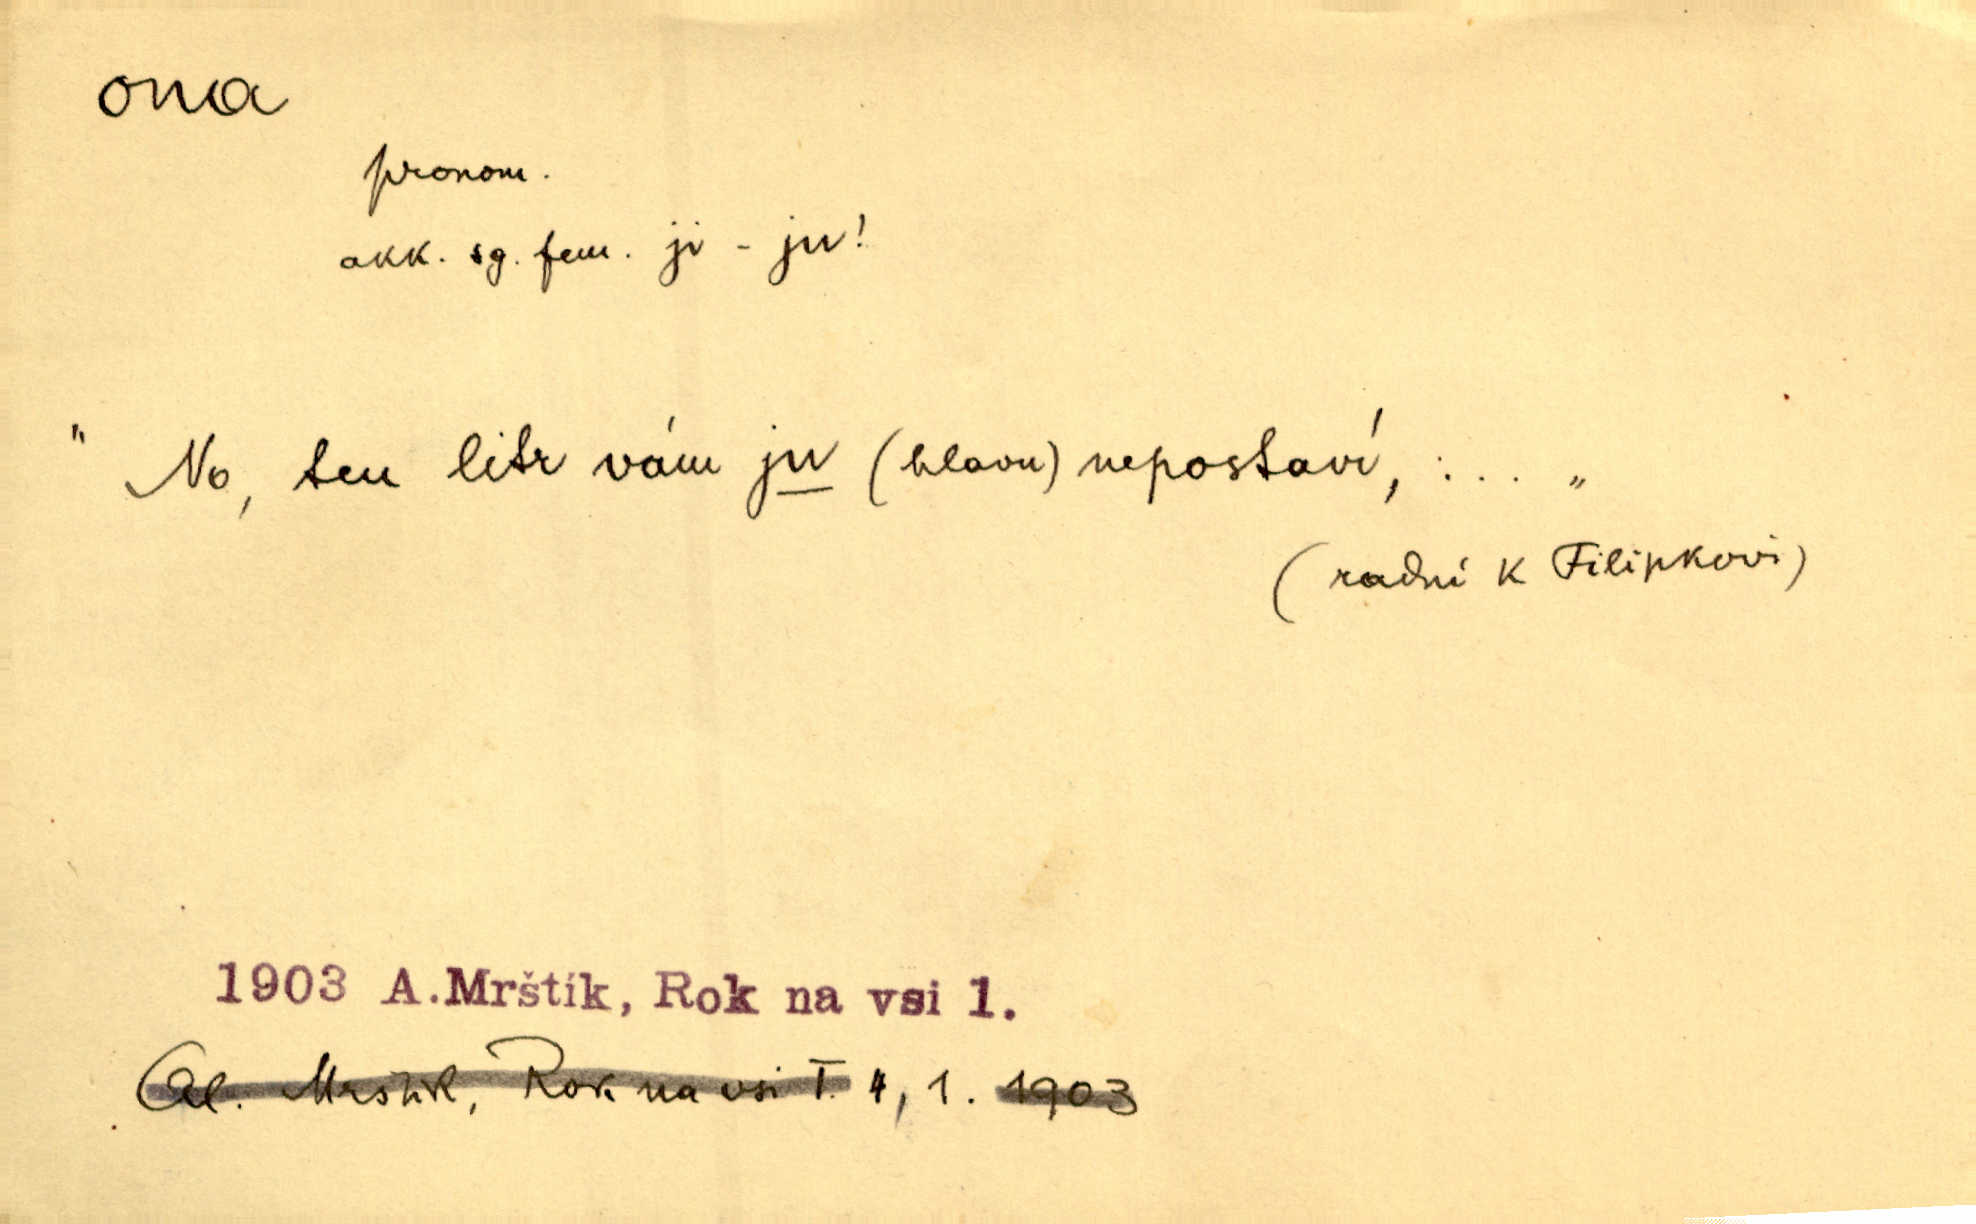 ona
pronom.
akk. sg. fem. ji - ju!
" No, ten litr vám ju (hlavu) nepostaví, : . . . „
(radní k Filipkovi)
1903 A.Mrštík, Rok na vsi 1.
Al. Mrštík, Rok na vsi I. 4, 1. 1903